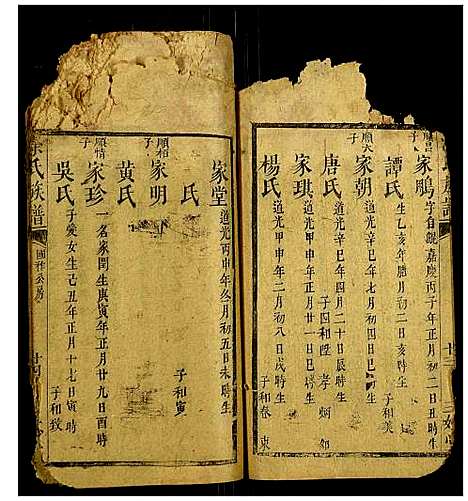 順昌子
家鵬 字自號 嘉慶丙子年正月初二日丑時生
譚氏 生乙亥年腊月初二日亥時生 子和美
順大子
家朝 道光辛巳年六月初三日巳時生
唐氏 道光辛巳年四月二十日辰時生 子四和陞 孝 炳 鄒
家琪 道光甲申年十一月廿一日巳時生
楊氏 道光甲申年二月初八日戌時生 子和春 東
家堂 道光丙申年冬月初五日未時生
氏 子和寅
順相子
家明
黄氏
順情子
家珍 一名家閏生庚寅年正月廿九日酉時
吳氏 子愛女生己丑年正月十七日寅時 子和致
氏族譜
國祥公房
廿四